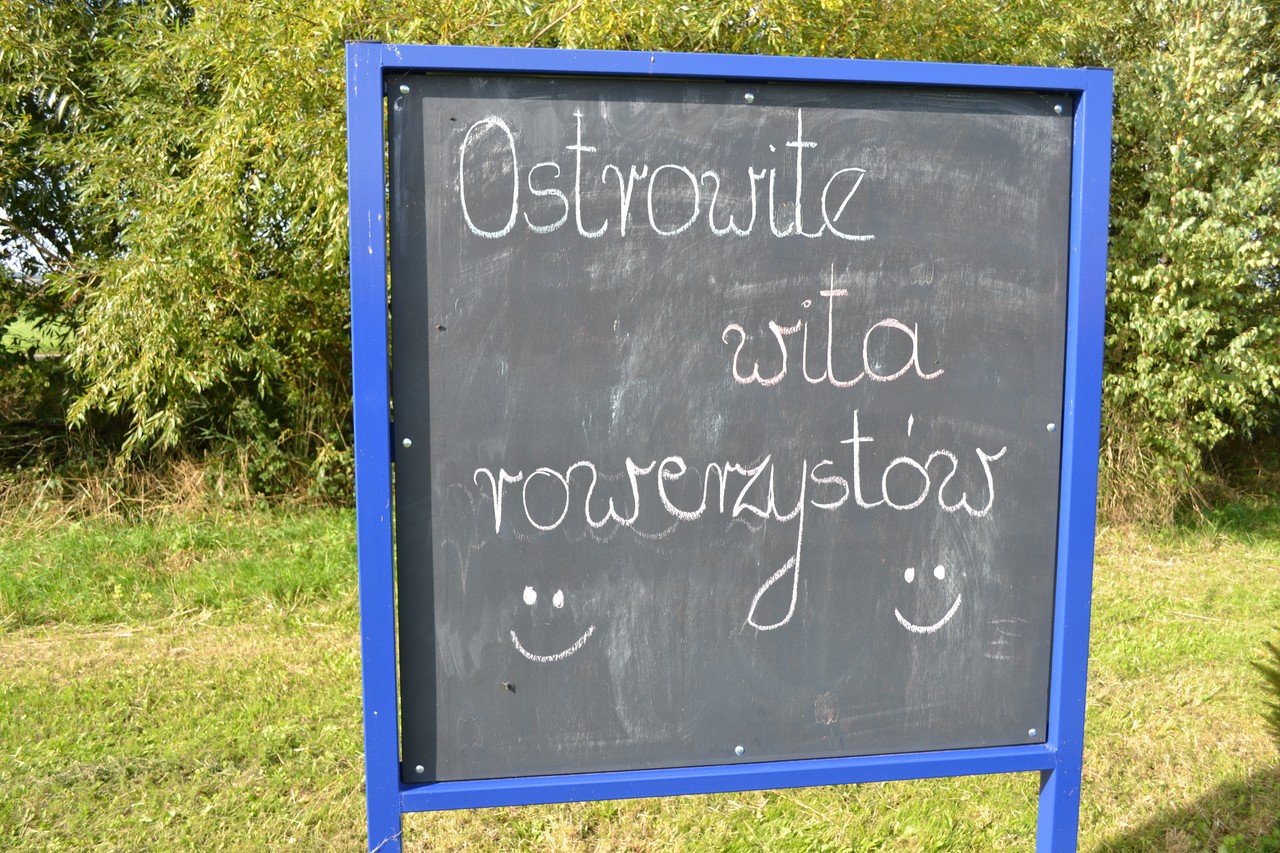 Ostrowite
wita
rowerzystów